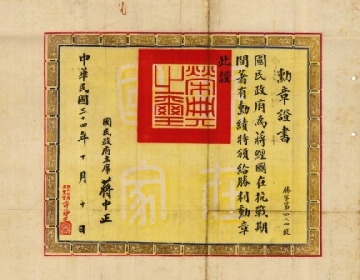 勳章證書
國民政府為蔣經國在抗戰期
間著有勳績特頒給勝利勳章
此證
國民政府主席 蔣中正
中華民國三十四年十月十日
榮典之璽